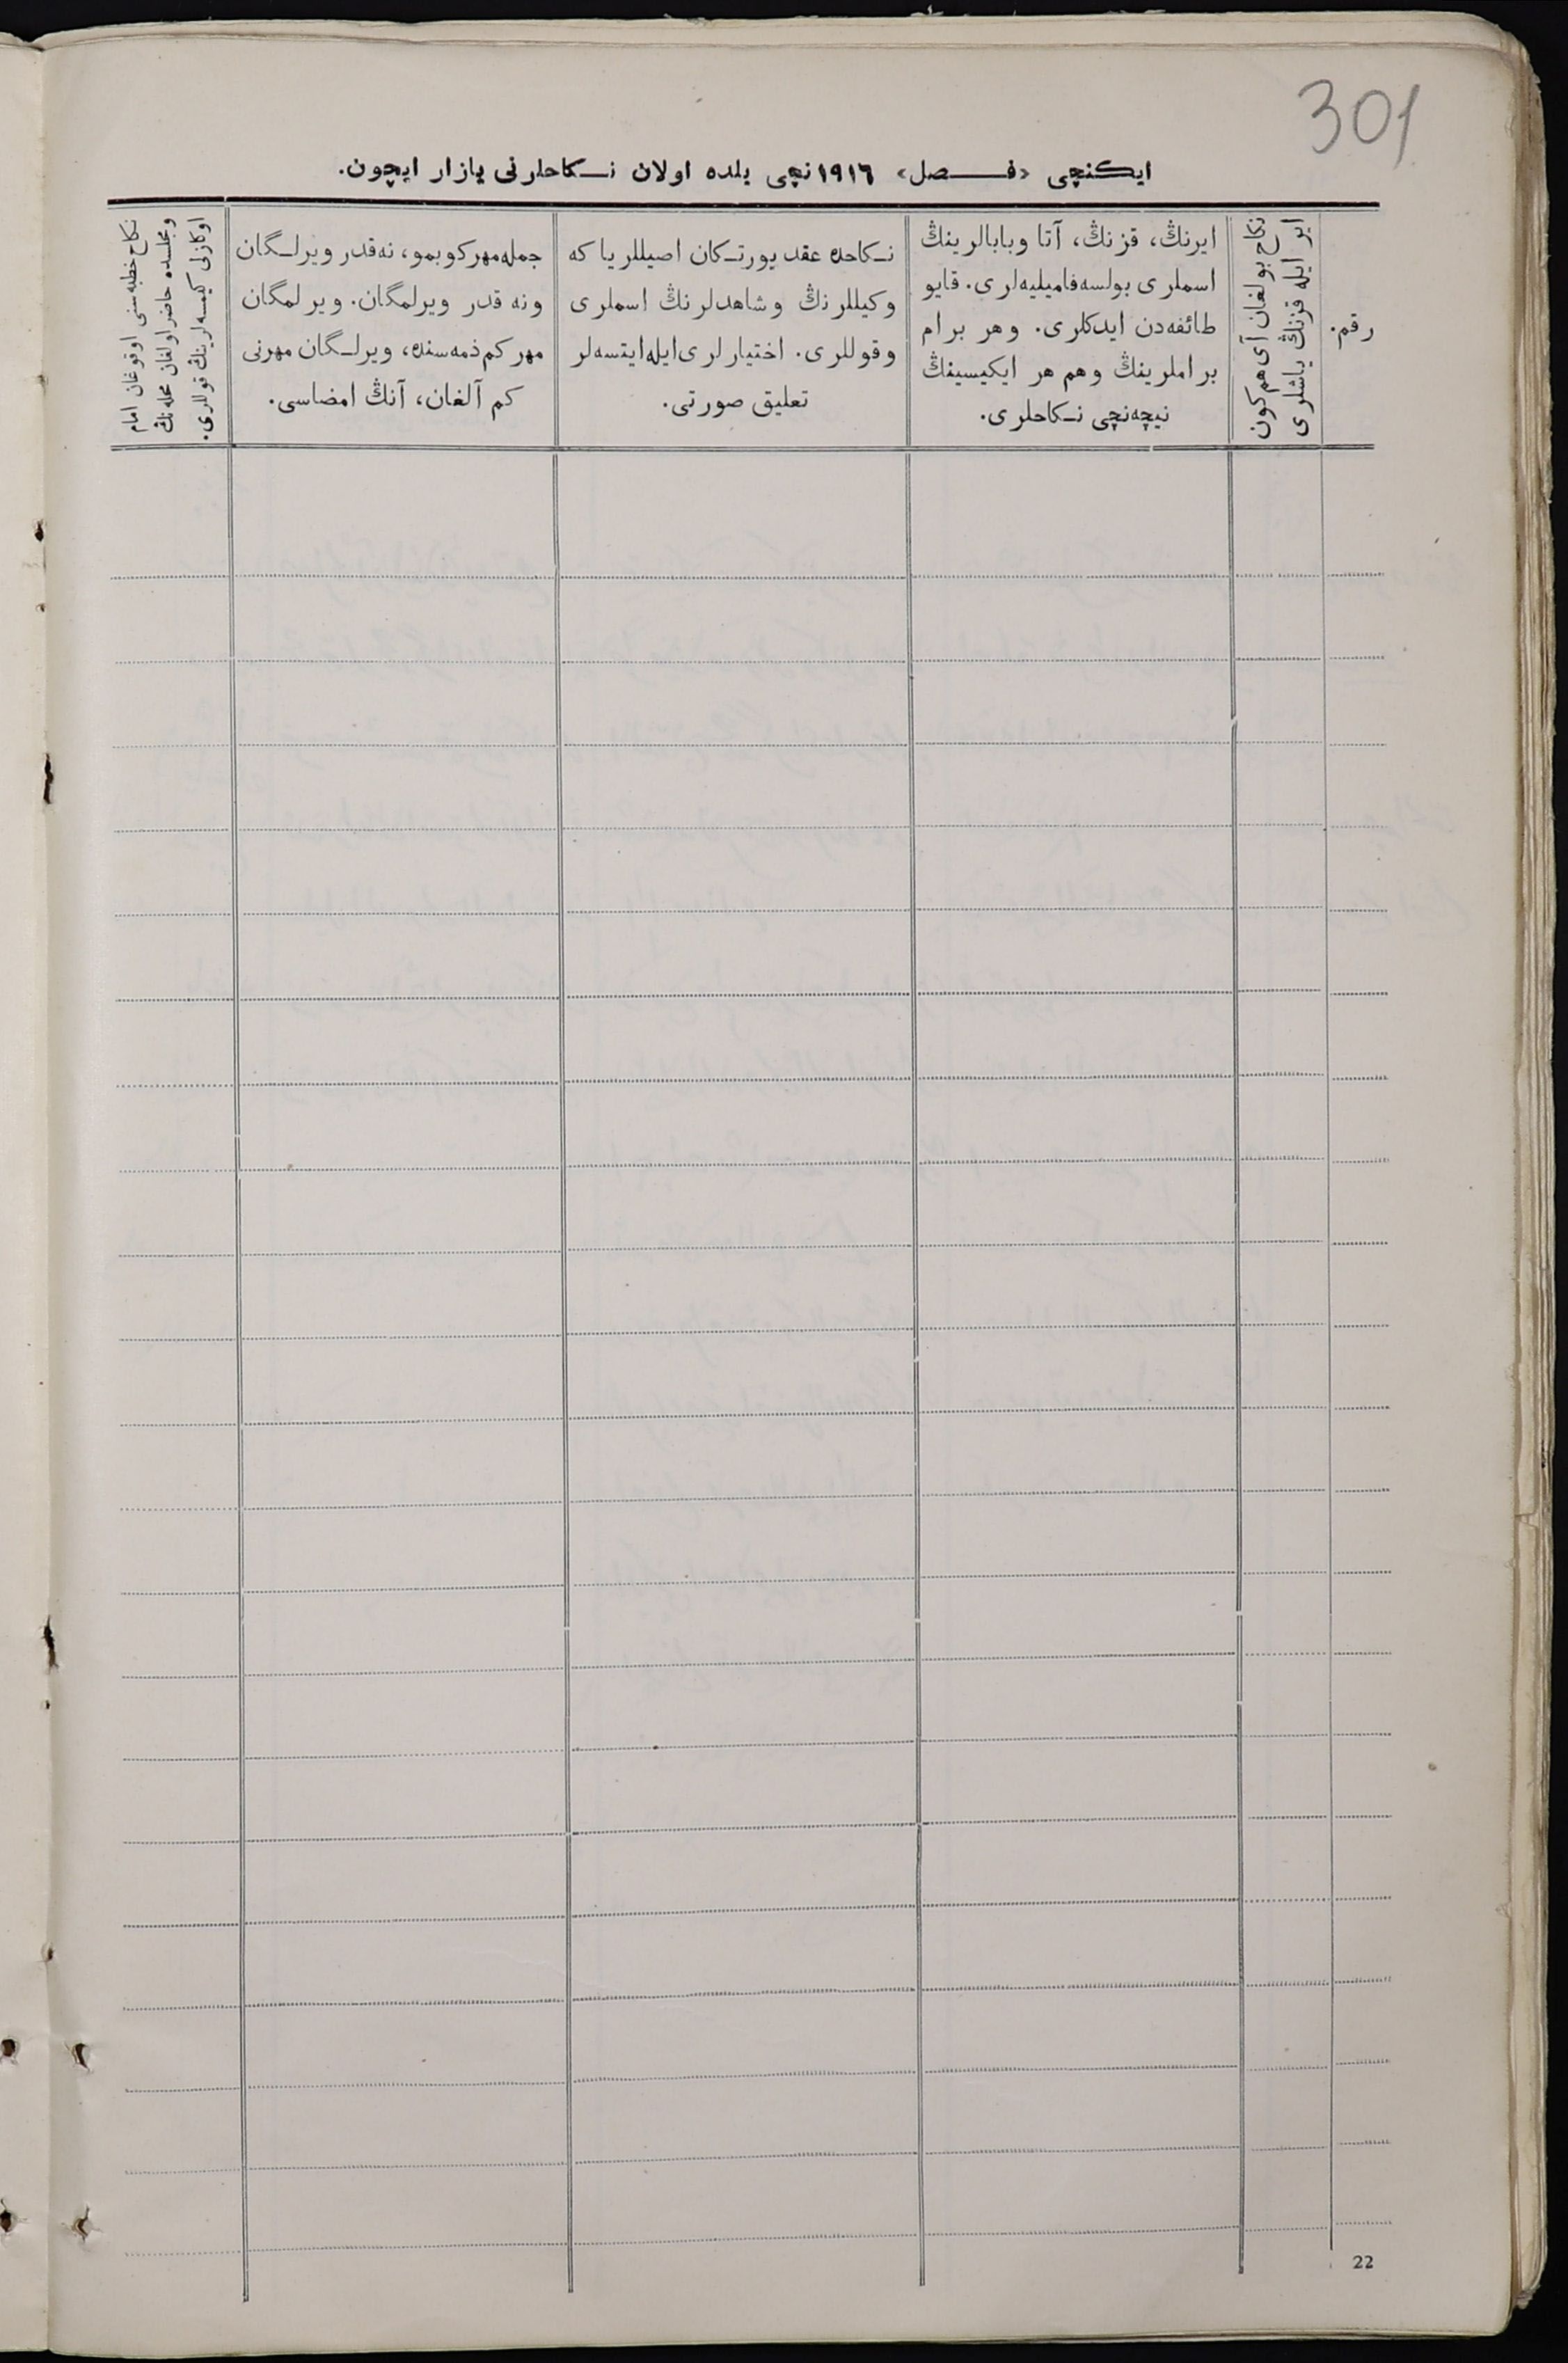 301
ایکنچی «فصل» ١٩١٦نچی یلده اولان نکاحلرنی یازار ایچون.
رقم.
نکاح بولغان آی هم کون
ایر ایله قزنڭ یاشلری
ایرنڭ، قزنڭ، آتا وبابالرینڭ
اسملری بولسه فامیلیه‌لری. قایو
طائفه‌دن ایدکلری. وهر برام
براملرینڭ وهم هر ایکیسینڭ
نیچه‌نچی نکاحلری.
نکاحده عقد یورتکان اصیللریا که
وکیللرنڭ وشاهدلرنڭ اسملری
وقوللری. اختیارلری‌ایله‌ایتسه‌لر
تعلیق صورتی.
جمله‌مهرکوبمو، نه‌قدر ویرلگان
ونه قدر ویرلمگان. ویرلمگان
مهرکم‌ذمه‌سنده، ویرلگان مهرنی
کم آلغان، آنڭ امضاسی.
نکاح خطبه‌سنی اوقوغان امام
ومجلسده حاضر اولغان محله‌نڭ
اوکازلی کیمسه‌لرینڭ قوللری.
22